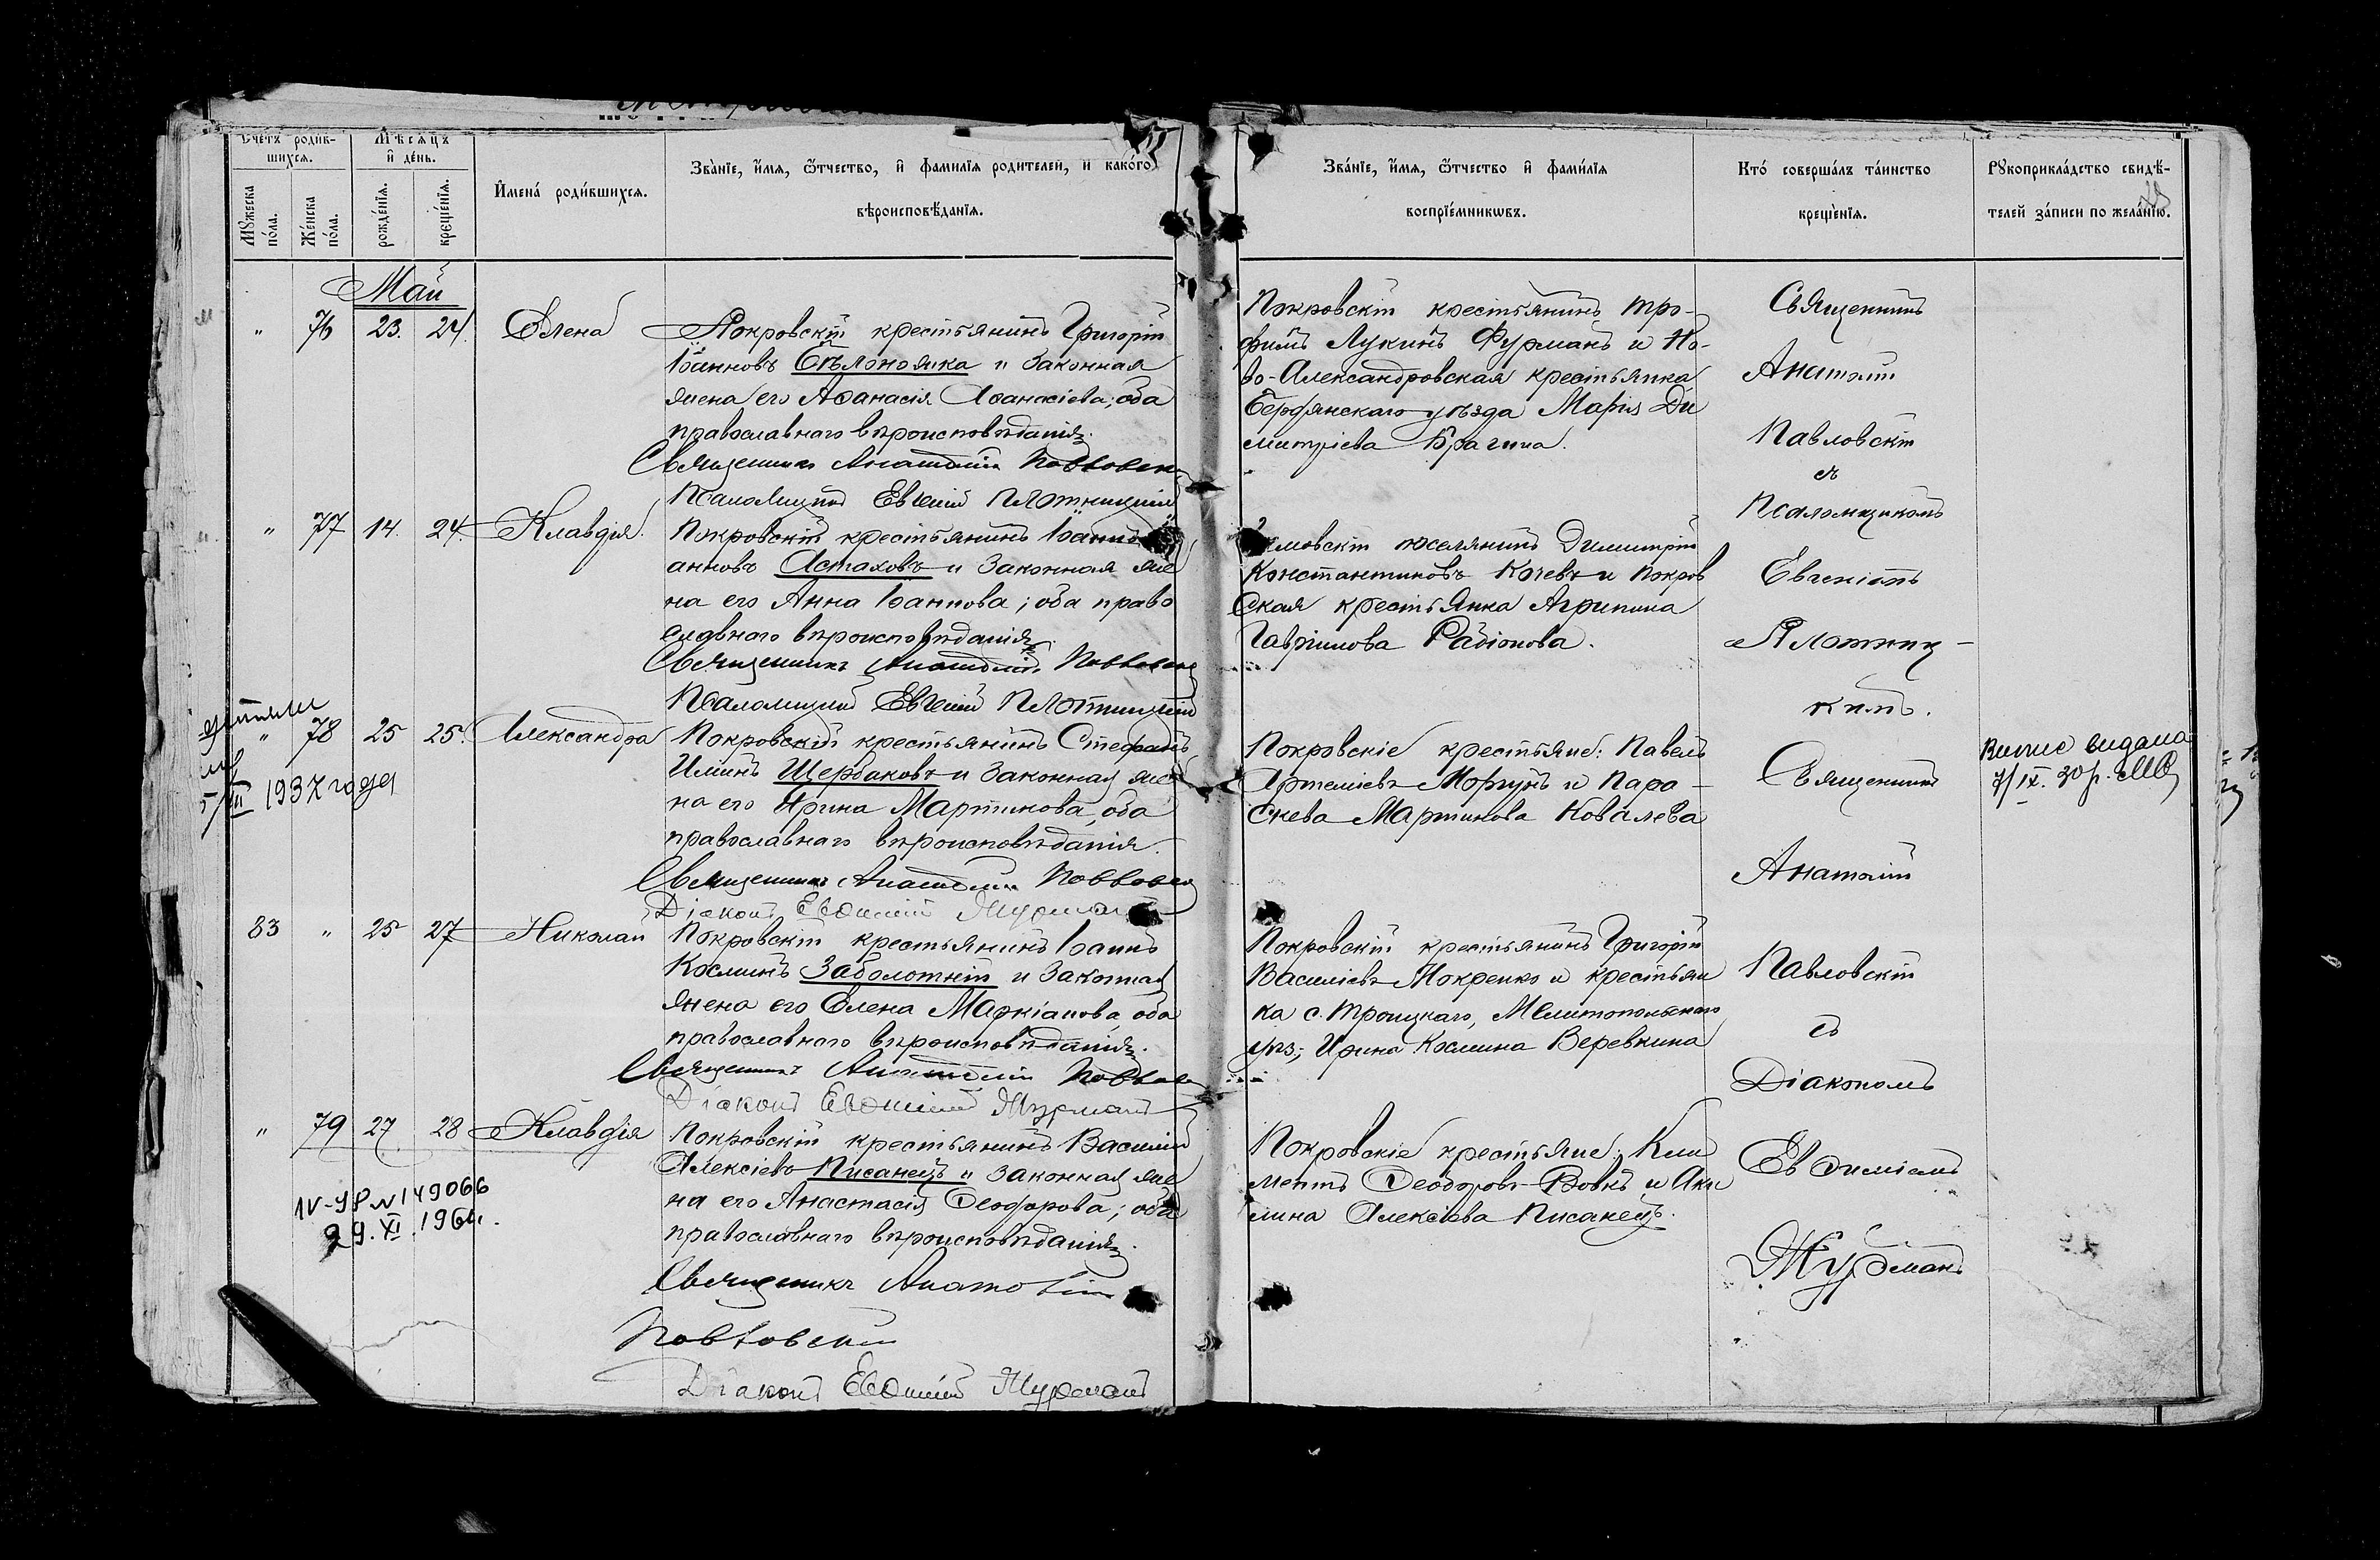 Счетъ родив-
шихся.
Мѣсяцъ
и день.
Мужеска
пола.
Женска
пола.
рожденія.
крещенія.
Имена родившихся.
Званіе, имя, отчество, и фамилія родителей, и какого
вѣроисповѣданія.
Званіе, имя, отчество и фамилія
воспріемниковъ.
Кто совершалъ таинство
крещенія.
Рукоприкладство свидѣ-
телей записи по желанію.
Май
" 76 23. 24. Елена
Покровскій крестьянинъ Григорій
Іоанновъ Бѣлоножка и законная
жена его Аѳанасія Аѳанасіева; оба
православнаго вѣроисповѣданія.
Священникъ Анатолій Павловскій
Псаломщикъ Евгеній Плотницкій
Покровскій крестьянинъ Тро-
фимъ Лукинъ Фурманъ и Но-
во-Александровская крестьянка
Бердянскаго уѣзда Марія Ди
митріева Брагина.
" 77 14. 24. Клавдія.
Покровскій крестьянинъ
анновъ Астаховъ и законная же
на его Анна Іоаннова; оба право
славнаго вѣроисповѣданія.
Священникъ Анатолій Павловскій
Псаломщикъ Евгеній Плотницкій
поселянинъ Димитрій
Константиновъ Кочевъ и Покров
ская крестьянка Агрипина
Гавріилова Радіонова.
Священникъ
Анатолій
Павловскій
съ
Псаломщикомъ
Евгеніемъ
Плотниц-
кимъ.
5/III 1937 года
" 78 25 25. Александра
Покровскій крестьянинъ Стефанъ
Илиинъ Щербаковъ и законная же
на его Ирина Мартинова, оба
православнаго вѣроисповѣданія.
Священникъ Анатолій Павловскій
Діаконъ Евѳимій Журманъ
Покровскіе крестьяне: Павелъ
Артеміевъ Моргунъ и Пара-
скева Мартинова Ковалева
видана
7/IX. 30 р.
83 " 25 27 Николай
Покровскій крестьянинъ Іоаннъ
Косминъ Заболотній и законная
жена его Елена Маркіанова, оба
православнаго вѣроисповѣданія.
Священникъ Анатолій Павловскій
Діаконъ Евѳимій Журманъ
Покровскій крестьянинъ Григорій
Василіевъ Мокренко и крестьян
ка с. Троицкаго, Мелитопольскаго
уѣз; Ирина Космина Веревкина
" 79 27 28 Клавдія
Покровскій крестьянинъ Василій
Алексіевъ Писанецъ и законная же
на его Анастасія Ѳеодорова; оба
православнаго вѣроисповѣданія.
Священникъ Анатолій
Павловскій
Діаконъ Евѳимій Журманъ
Покровскіе крестьяне: Кли
ментъ Ѳеодоровъ Вовкъ и Аки
лина Алексіева Писанецъ.
IV-УР N 149066
29.XI.196
Священникъ
Анатолій
Павловскій
съ
Діакономъ
Евѳиміемъ